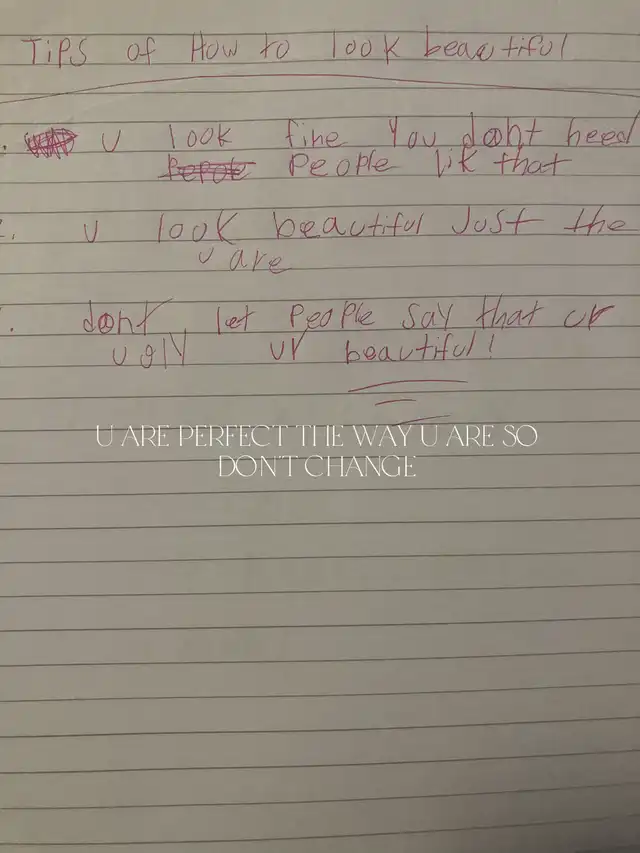 Tips of How to look beautiful
. u look fine You dont need
People lik that
2. u look beautiful Just the
u are
. dont let People say that ur
ugly ur beautiful!
U ARE PERFECT THE WAY U ARE SO
DON'T CHANGE